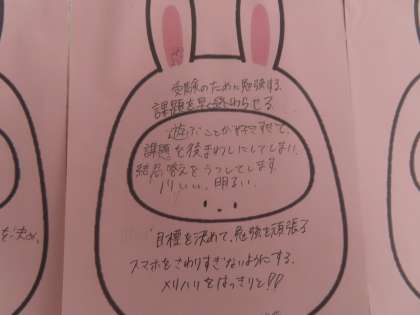 受験のために勉強する。
課題を早く終わらせる
遊ぶことが好きすぎて、
課題を後まわしにしてしまい、
結局答えをうつしてします。
明るい、
目標を決めて、勉強を頑張る
スマホをさわりすぎないようにする。
メリハリをはっきりと!!
を決め、